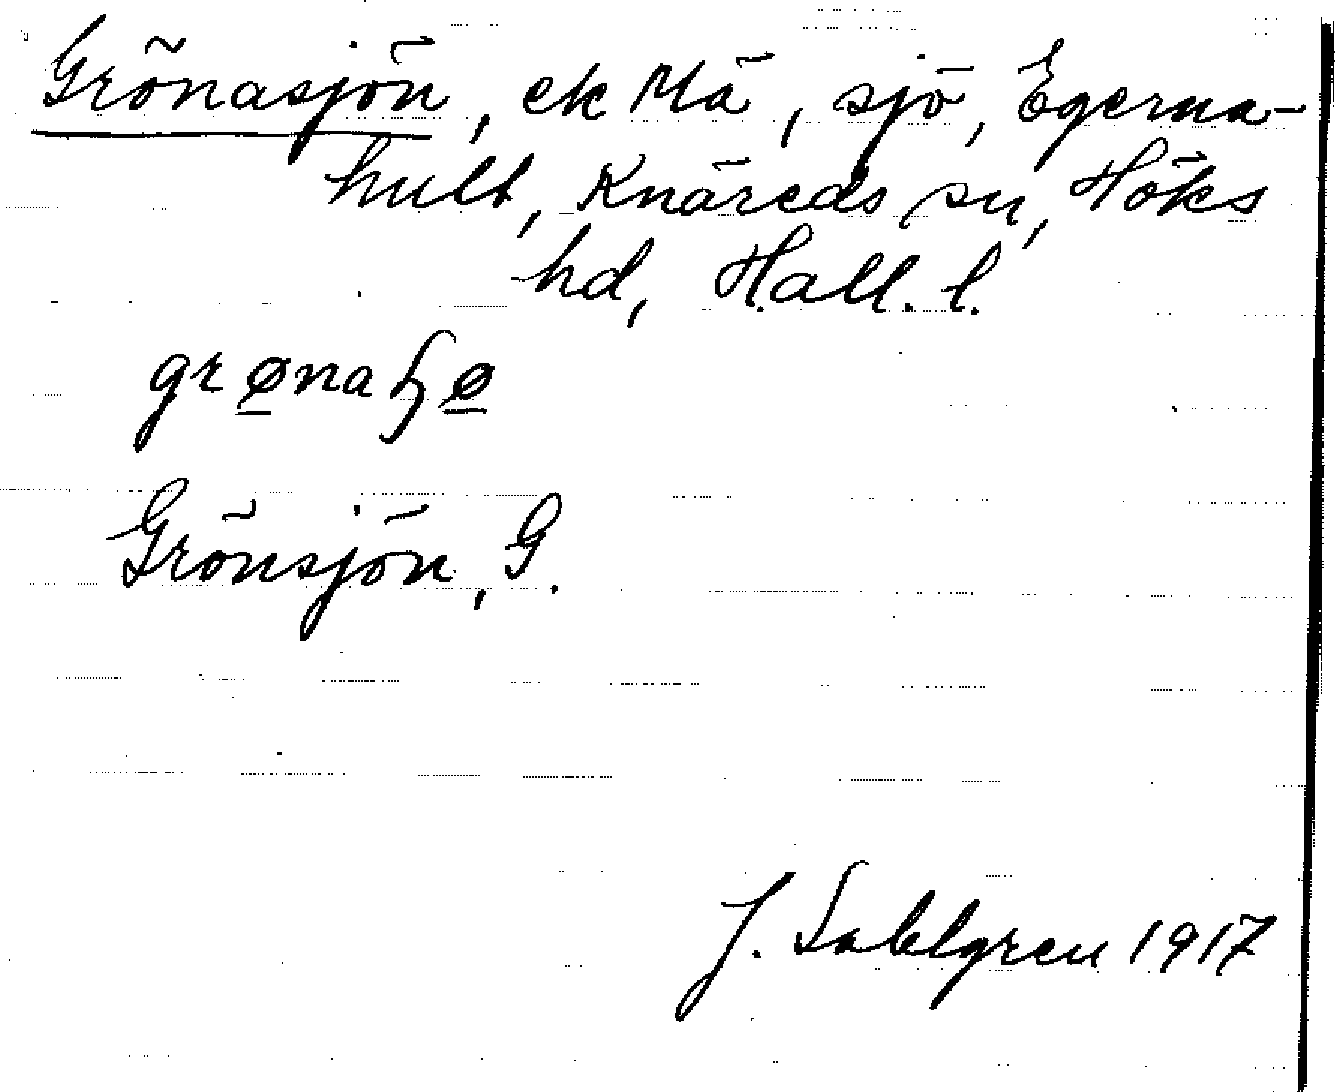 Grönasjön, ek Mä, sjö, Egerna-
hult, Knäreds sn, Höks
hd, Hall. l.
grø̲naɧø̲
Grönsjön, G.
J. Sahlgren 1917